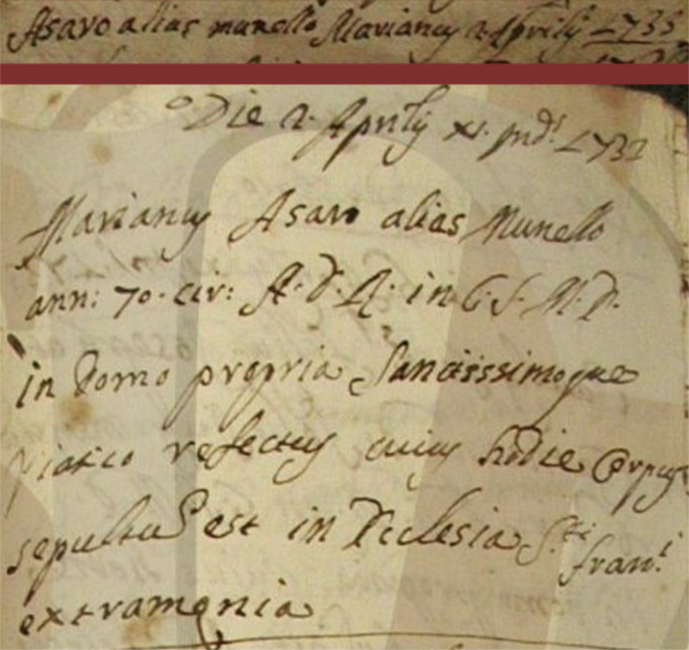 Asaro alias munello Marianus 2 Aprilis 1735
Die 2. Aprilis xi. Ind: 1733
Marianus Asaro alias Munello
ann: 70. cir: A. D. R. in C. S. M. D.
in domo propria Sanctissimoque
viatico refectus cuius hodie Corpus
sepultus est in Ecclesia S.ti
fran.i
extramonia